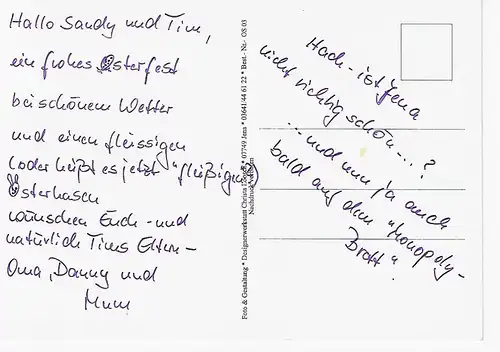 Hallo Sandy und Tim,
ein frohes Osterfest
bei schönem Wetter
und einen fleissigen
(oder heißt es jetzt "fleißigen")
Osterhasen
wünschen Euch - und
natürlich Tims Eltern -
Oma, Danny und
Mum
Foto & Gestaltung * Designerwerkstatt Christa * 07749 Jena * 03641/44 61 22 * Best.- Nr.- OS 03
Hach - ist Jena
nicht richtig schön...?
... und nun ja auch
bald auf dem "Monopoly-
Brett"!